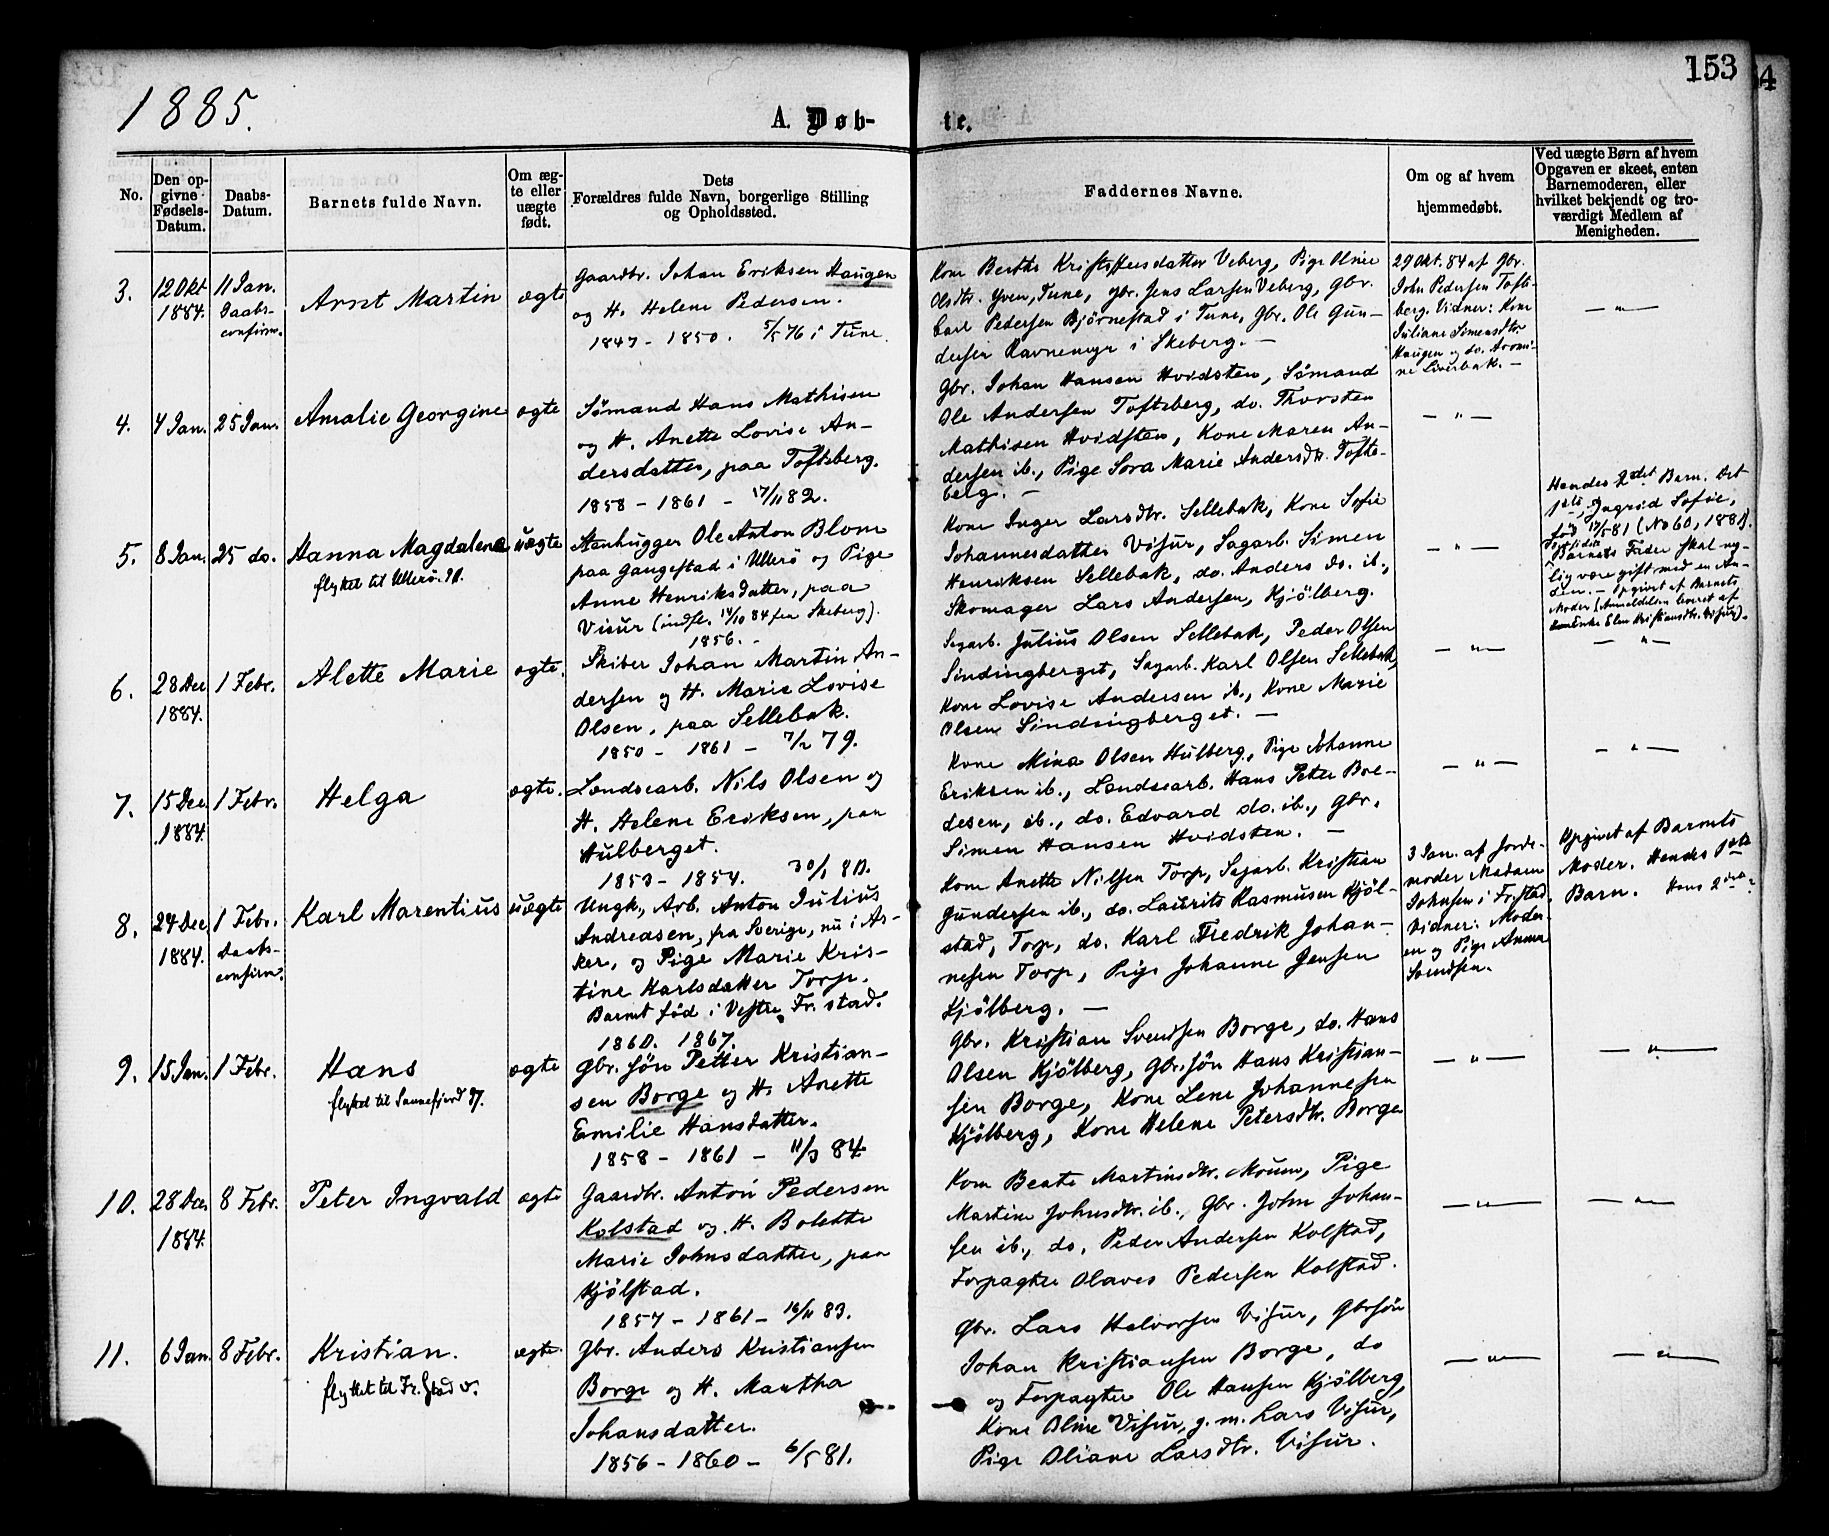 153
1885.
A. Døb-
te.
No.
Den op-
givne
Fødsels-
Datum.
Daabs-
Datum.
Barnets fulde Navn.
Om æg-
te eller
uægte
født.
Dets
Forældres fulde Navn, borgerlige Stilling
og Opholdssted.
Faddernes Navne.
Om og af hvem
hjemmedøbt.
Ved uægte Børn af hvem
Opgaven er skeet, enten
Barnemoderen, eller
hvilket bekjendt og tro-
værdigt Medlem af
Menigheden.
3.
12 Okt
1884.
11 Jan.
Daabs-
confirm.
Arnt Martin
ægte
Gaardbr. Johan Eriksen Haugen
og H. Helene Pedersen.
1847 - 1850. 5/5 76 i Tune.
Kone Berthe Kristoffersdatter Veberg, Pige Oline
Olsdtr. Yven, Tune, Gbr. Jens Larsen Veberg, Gbr.
Carl Pedersen Bjørnestad i Tune, Gbr. Ole Gun-
dersen Ravnemyr i Skeberg. —
29 Okt. 84 af Gbr.
John Pedersen Tofte-
berg. Vidner: Kone
Juliane Simensdtr.
Haugen og do.
— " —
4.
4 Jan.
25 Jan.
Amalie Georgine
ægte
Sømand Hans Mathisen
og H. Anette Lovise An-
dersdatter, paa Tofteberg.
1858 - 1861 - 17/11 82.
Gbr. Johan Hansen Hvidsten, Sømand
Ole Andersen Tofteberg, do. Thorsten
Mathisen Hvidsten, Kone Maren An-
dersen ib., Pige Sora Marie Andersdtr. Tofte-
berg. —
— " —
5.
8 Jan.
25 do.
Hanna Magdalene
flyttet til Ullerø. 90.
uægte
Stenhugger Ole Anton Blom
paa Gangestad i Ullerø og Pige
Anne Henriksdatter, paa
Visur (indfl. 14/10 84 fra Skeberg).
1856. -
Kone Inger Larsdtr. Sellebak, Kone Sofie
Johannesdatter Visur, Sagarb. Simen
Henriksen Sellebak, do. Anders do. ib.,
Skomager Lars Andersen, Kjølberg.
— " —
Hendes 2det Barn. Det
1ste, Ingrid Sofie,
fød 17/5 81 (No 60, 1881).
Barnets Fader skal
lig være gift med en An-
den. - Opgivet af Barnets
Moder (Anmeldelsen leveret af
Enke Elen Kristiansdtr. Visur).
6.
28 Dec
1884.
1 Febr.
Alette Marie
ægte.
Skiber Johan Martin An-
dersen og H. Marie Lovise
Olsen, paa Sellebak.
1850 - 1861 - 7/2 79.
Sagarb. Julius Olsen Sellebak, Peder Olsen
Sindingberget, Sagarb. Karl Olsen Sellebak,
Kone Lovise Andersen ib., Kone Marie
Olsen Sindingberget. —
— " —
— " —
7.
15 Dec
1884.
1 Febr.
Helga
ægte.
Landsearb. Nils Olsen og
H. Helene Eriksen, paa
Hulberget.
1853 - 1854. 30/1 80.
Kone Mina Olsen Hulberg, Pige Johanne
Eriksen ib., Landsearb. Hans Peter Boe-
desen, ib., do. Edvard do. ib., Gbr.
Simen Hansen Hvidsten. —
— " —
— " —
8.
24 Dec
1884.
1 Febr.
Daabs-
confirm.
Karl Marentius
uægte
Ungk., Arb. Anton Julius
Andreasen, fra Sverige, nu i As-
ker, og Pige Marie Kris-
tine Karlsdatter Torp.
Barnet fød i Vestre Fr. stad.
1860. 1867.
Kone Anette Nilsen Torp, Sagarb. Kristian
Gundersen ib., do. Laurits Rasmussen Kjøl-
stad, Torp, do. Karl Fredrik Johan-
nesen Torp, Pige Johanne Jensen
Kjølberg. —
3 Jan. af Jorde-
moder Madam
Johnsen i Fr.stad.
Vidner: Moder-
en og Pige Anna
Svendsen.
Opgivet af Barnets
Moder. Hendes 1ste
Barn. Hans 2det?
9.
15 Jan.
1 Febr.
Hans
flyttet til Sannefjord 87.
ægte
Gbr. søn Petter Kristian-
sen Borge og H. Anette
Emilie Hansdatter.
1858 - 1861 - 11/3 84
Gbr. Kristian Svendsen Borge, do. Hans
Olsen Kjølberg, Gbr.søn Hans Kristian-
sen Borge, Kone Lene Johannesen
Kjølberg, Kone Helene Petersdtr. Borge
— " —
— " —
10.
28 Dec.
1884.
8 Febr.
Peter Ingvald
ægte
Gaardbr. Anton Pedersen
Kolstad og H. Bolette
Marie Johnsdatter, paa
Kjølstad.
1857 - 1861 - 16/11 83.
Kone Beate Martinsdtr. Moum, Pige
Martine Johnsdtr. ib., Gbr. John Johan-
sen ib., do. Peder Andersen Kolstad,
Forpagter Olaves Pedersen Kolstad.
— " —
— " —
11.
6 Jan.
8 Febr.
Kristian.
flyttet til Fr. stad v.
ægte.
Gbr. Anders Kristiansen
Borge og H. Martha
Johansdatter.
1856 - 1860 - 6/5 81.
Gbr. Lars Halvorsen Visur, Gbrsøn
Johan Kristiansen Borge, do
og Forpagter Ole Hansen Kjølberg,
Kone Oline Visur, g. m. Lars Visur,
Pige Oliane Larsdtr. Visur.
— " —
— " —